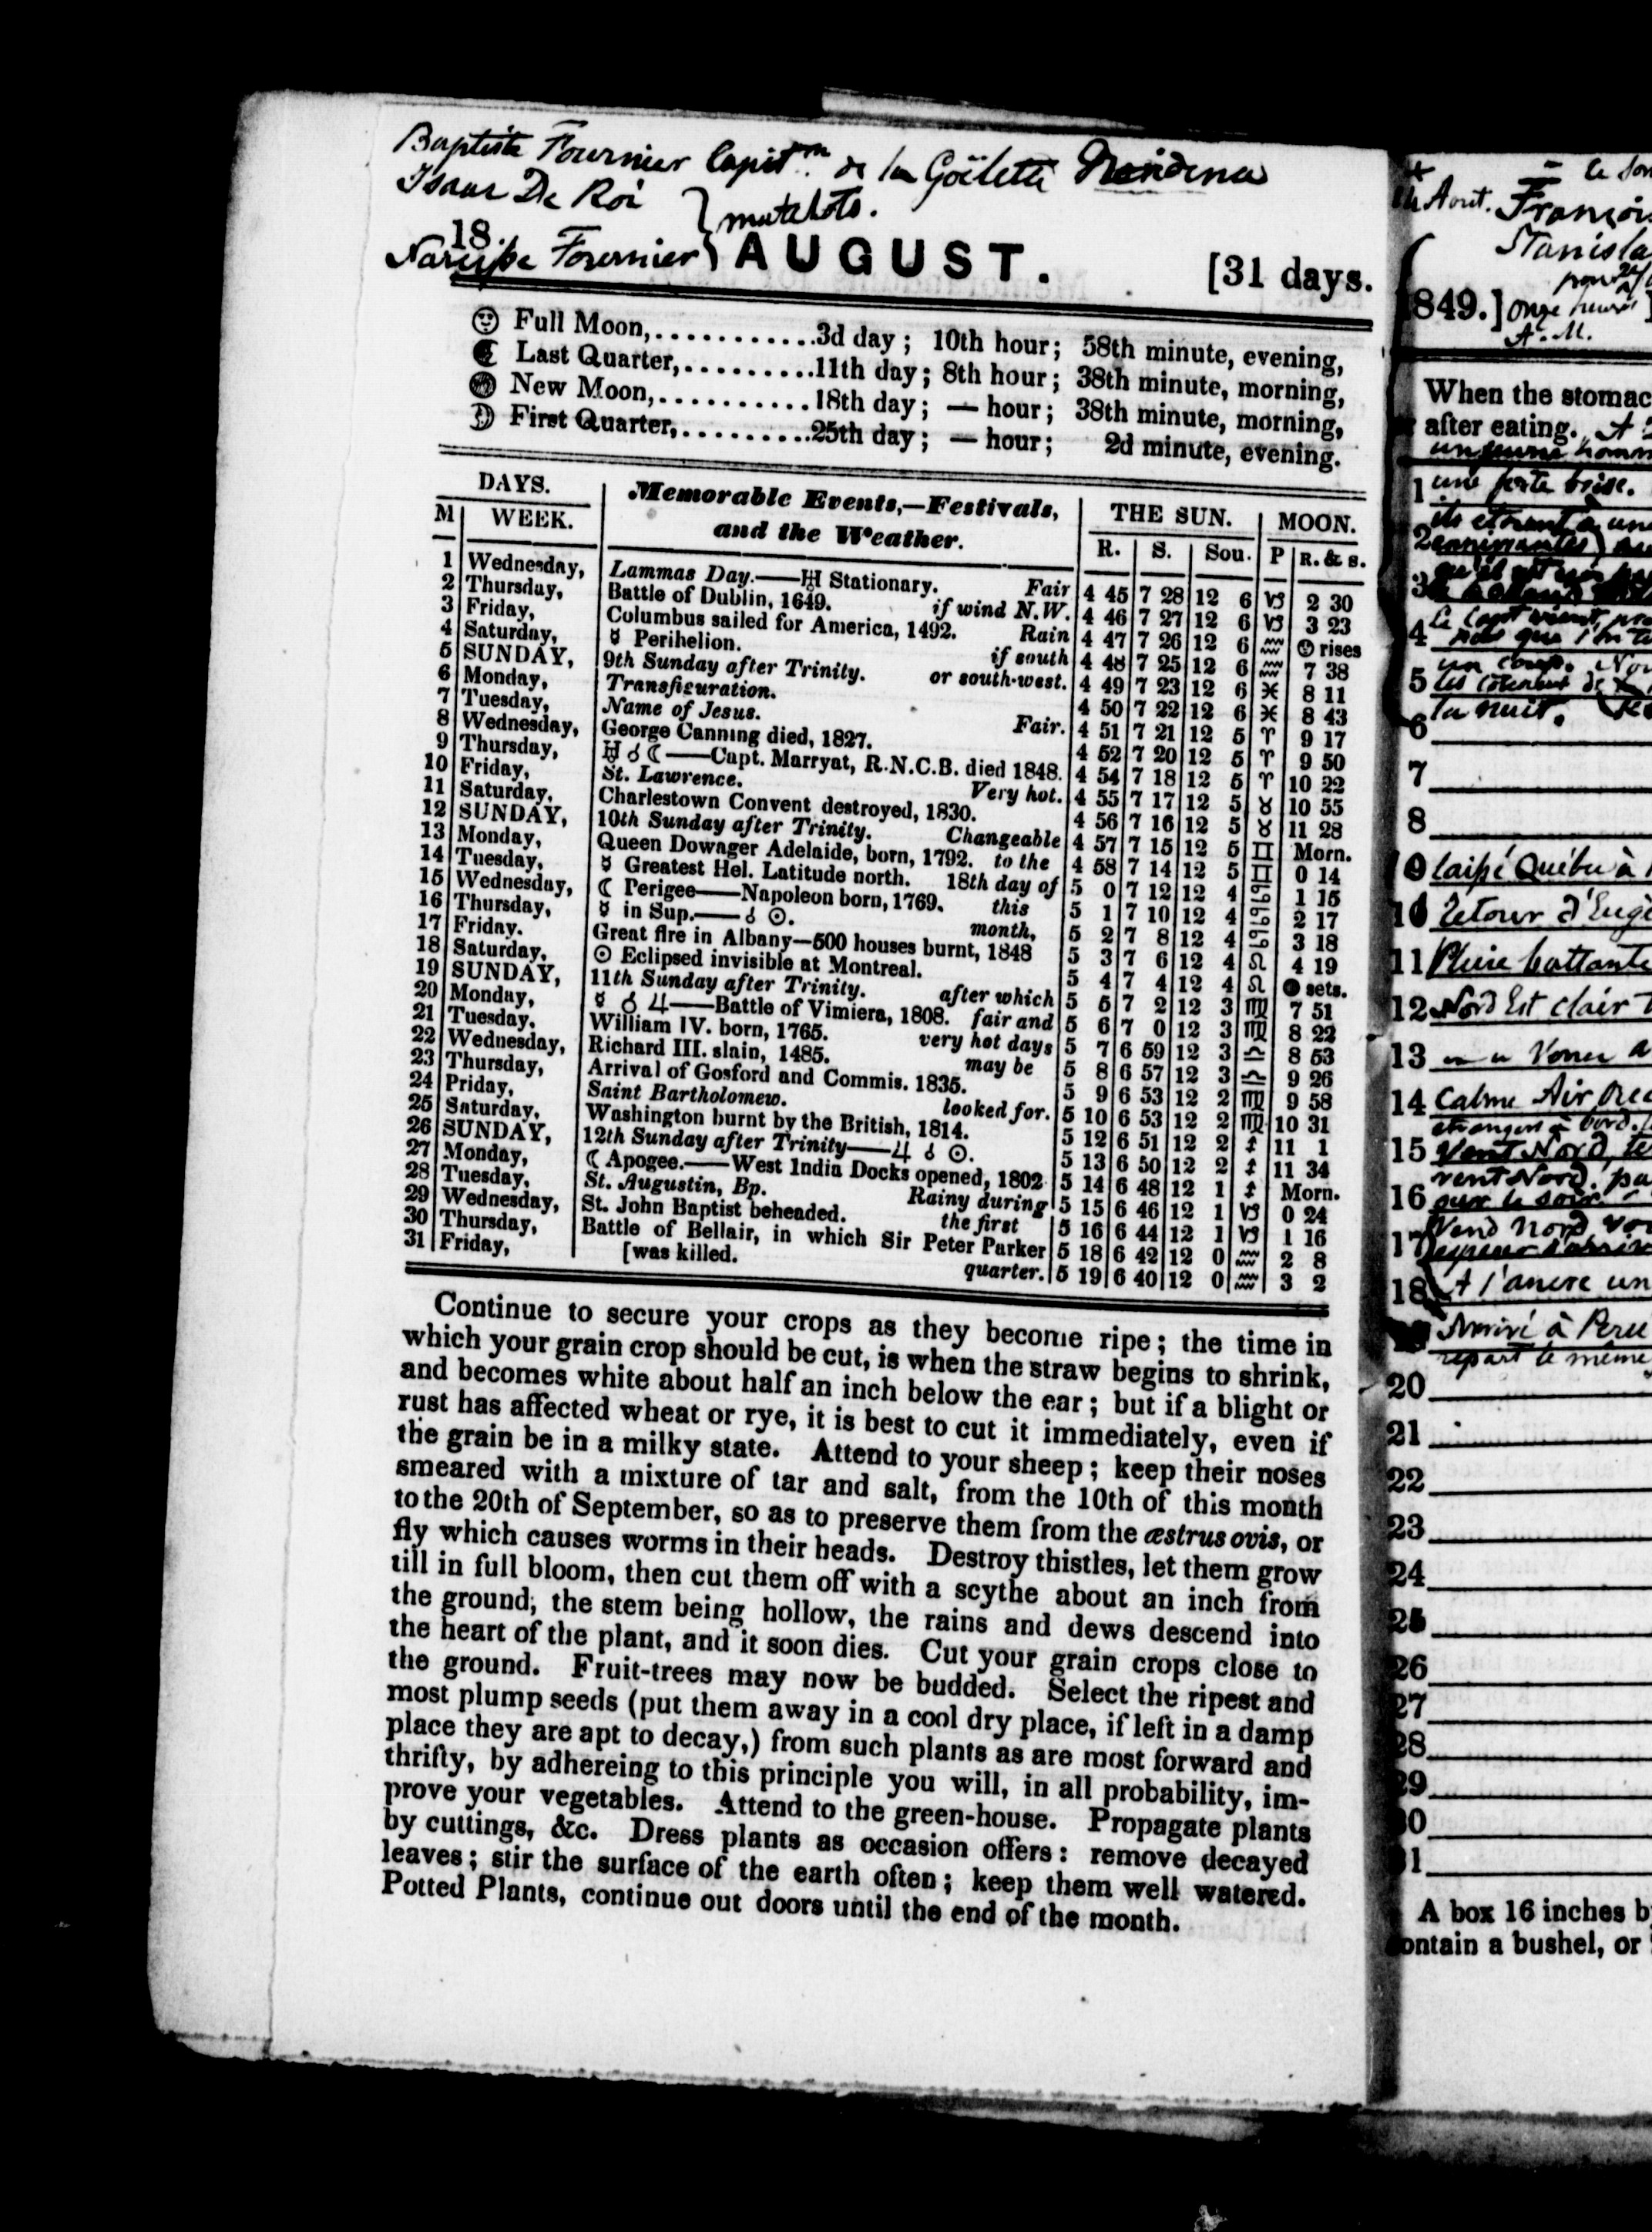 Baptiste Fournier Capit.ne de la Goëlette
Isaac De Roi } matelots.
Narcisse Fournier
18.
AUGUST. [31 days.
Full Moon,............3d day; 10th hour; 58th minute, evening,
Last Quarter,..........11th day; 8th hour; 38th minute, morning,
New Moon,...........18th day; — hour; 38th minute, morning,
First Quarter,..........25th day; — hour; 2d minute, evening.
DAYS. Memorable Events,—Festivals, and the Weather. THE SUN. MOON.
M WEEK. R. S. Sou. P R. & S.
1 Wednesday, Lammas Day.——♅ Stationary. Fair 4 45 7 28 12 6 ♑ 2 30
2 Thursday, Battle of Dublin, 1649. if wind N.W. 4 46 7 27 12 6 ♑ 3 23
3 Friday, Columbus sailed for America, 1492. Rain 4 47 7 26 12 6 ♒ rises
4 Saturday, ☿ Perihelion. if south 4 48 7 25 12 6 ♒ 7 38
5 SUNDAY, 9th Sunday after Trinity. or south-west. 4 49 7 23 12 6 ♓ 8 11
6 Monday, Transfiguration. 4 50 7 22 12 6 ♓ 8 43
7 Tuesday, Name of Jesus. Fair. 4 51 7 21 12 5 ♈ 9 17
8 Wednesday, George Canning died, 1827. 4 52 7 20 12 5 ♈ 9 50
9 Thursday, ♅ ☌ ☾——Capt. Marryat, R.N.C.B. died 1848. 4 54 7 18 12 5 ♈ 10 22
10 Friday, St. Lawrence. Very hot. 4 55 7 17 12 5 ♉ 10 55
11 Saturday, Charlestown Convent destroyed, 1830. 4 56 7 16 12 5 ♉ 11 28
12 SUNDAY, 10th Sunday after Trinity. Changeable 4 57 7 15 12 5 ♊ Morn.
13 Monday, Queen Dowager Adelaide, born, 1792. to the 4 58 7 14 12 5 ♊ 0 14
14 Tuesday, ☿ Greatest Hel. Latitude north. 18th day of 5 0 7 12 12 4 ♋ 1 15
15 Wednesday, ☾ Perigee——Napoleon born, 1769. this 5 1 7 10 12 4 ♋ 2 17
16 Thursday, ☿ in Sup.——☌ ☉. month, 5 2 7 8 12 4 ♋ 3 18
17 Friday. Great fire in Albany—500 houses burnt, 1848 5 3 7 6 12 4 ♌ 4 19
18 Saturday, ☉ Eclipsed invisible at Montreal. 5 4 7 4 12 4 ♌ sets.
19 SUNDAY, 11th Sunday after Trinity. after which 5 5 7 2 12 3 ♍ 7 51
20 Monday, ☿ ☌ ♃——Battle of Vimiera, 1808. fair and 5 6 7 0 12 3 ♍ 8 22
21 Tuesday, William IV. born, 1765. very hot days 5 7 6 59 12 3 ♎ 8 53
22 Wednesday, Richard III. slain, 1485. may be 5 8 6 57 12 3 ♎ 9 26
23 Thursday, Arrival of Gosford and Commis. 1835. 5 9 6 53 12 2 ♍ 9 58
24 Friday, Saint Bartholomew. looked for. 5 10 6 53 12 2 ♍ 10 31
25 Saturday, Washington burnt by the British, 1814. 5 12 6 51 12 2 ♐ 11 1
26 SUNDAY, 12th Sunday after Trinity——♃ ☌ ☉. 5 13 6 50 12 2 ♐ 11 34
27 Monday, ☾ Apogee.——West India Docks opened, 1802 5 14 6 48 12 1 ♐ Morn.
28 Tuesday, St. Augustin, Bp. Rainy during 5 15 6 46 12 1 ♑ 0 24
29 Wednesday, St. John Baptist beheaded. the first 5 16 6 44 12 1 ♑ 1 16
30 Thursday, Battle of Bellair, in which Sir Peter Parker 5 18 6 42 12 0 ♒ 2 8
31 Friday, [was killed. quarter. 5 19 6 40 12 0 ♒ 3 2
Continue to secure your crops as they become ripe; the time in
which your grain crop should be cut, is when the straw begins to shrink,
and becomes white about half an inch below the ear; but if a blight or
rust has affected wheat or rye, it is best to cut it immediately, even if
the grain be in a milky state. Attend to your sheep; keep their noses
smeared with a mixture of tar and salt, from the 10th of this month
to the 20th of September, so as to preserve them from the æstrus ovis, or
fly which causes worms in their heads. Destroy thistles, let them grow
till in full bloom, then cut them off with a scythe about an inch from
the ground; the stem being hollow, the rains and dews descend into
the heart of the plant, and it soon dies. Cut your grain crops close to
the ground. Fruit-trees may now be budded. Select the ripest and
most plump seeds (put them away in a cool dry place, if left in a damp
place they are apt to decay,) from such plants as are most forward and
thrifty, by adhereing to this principle you will, in all probability, im-
prove your vegetables. Attend to the green-house. Propagate plants
by cuttings, &c. Dress plants as occasion offers: remove decayed
leaves; stir the surface of the earth often; keep them well watered.
Potted Plants, continue out doors until the end of the month.
Aout.
1849.] onze heures
A.M.
When the stomac
after eating.
1 une forte brise.
2
3
4
5
6 la nuit.
7
8
9 laissé Québec à
10 Retour d'Eug
11 Pluie battante
12 Nord Est clair
13
14 Calme Air
étrangers à bord.
15 Vent Nord,
vent Nord.
16 sur le soir.
17 Vend nord
18 A l'ancre un
Arrivé à
repart le même
20
21
22
23
24
25
26
27
28
29
30
31
A box 16 inches b
ontain a bushel, or